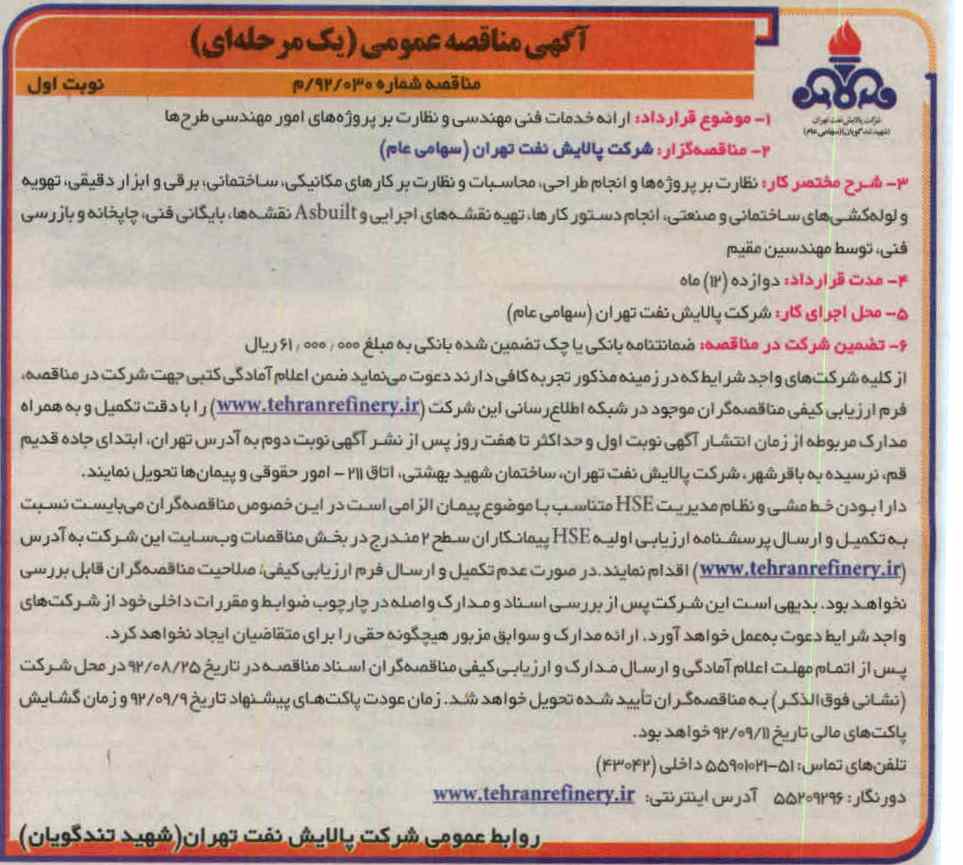 آگهی مناقصه عمومی (یک مرحله‌ای)
مناقصه شماره ۹۲/۰۳۰/م
نوبت اول
شرکت پالایش نفت تهران
(شهید تندگویان)(سهامی عام)
۱- موضوع قرارداد: ارائه خدمات فنی مهندسی و نظارت بر پروژه‌های امور مهندسی طرح‌ها
۲- مناقصه‌گزار: شرکت پالایش نفت تهران (سهامی عام)
۳- شرح مختصر کار: نظارت بر پروژه‌ها و انجام طراحی، محاسبات و نظارت بر کارهای مکانیکی، ساختمانی، برقی و ابزار دقیقی، تهویه
و لوله‌کشی‌های ساختمانی و صنعتی، انجام دستور کارها، تهیه نقشه‌های اجرایی و Asbuilt نقشه‌ها، بایگانی فنی، چاپخانه و بازرسی
فنی، توسط مهندسین مقیم
۴- مدت قرارداد: دوازده (۱۲) ماه
۵- محل اجرای کار: شرکت پالایش نفت تهران (سهامی عام)
۶- تضمین شرکت در مناقصه: ضمانتنامه بانکی یا چک تضمین شده بانکی به مبلغ ۶۱,۰۰۰,۰۰۰ ریال
از کلیه شرکت‌های واجد شرایط که در زمینه مذکور تجربه کافی دارند دعوت می‌نماید ضمن اعلام آمادگی کتبی جهت شرکت در مناقصه،
فرم ارزیابی کیفی مناقصه‌گران موجود در شبکه اطلاع‌رسانی این شرکت (www.tehranrefinery.ir) را با دقت تکمیل و به همراه
مدارک مربوطه از زمان انتشار آگهی نوبت اول و حداکثر تا هفت روز پس از نشر آگهی نوبت دوم به آدرس تهران، ابتدای جاده قدیم
قم، نرسیده به باقرشهر، شرکت پالایش نفت تهران، ساختمان شهید بهشتی، اتاق ۲۱۱ - امور حقوقی و پیمان‌ها تحویل نمایند.
دارا بودن خط مشی و نظام مدیریت HSE متناسب با موضوع پیمان الزامی است در این خصوص مناقصه‌گران می‌بایست نسبت
به تکمیل و ارسال پرسشنامه ارزیابی اولیه HSE پیمانکاران سطح ۲ مندرج در بخش مناقصات وب‌سایت این شرکت به آدرس
(www.tehranrefinery.ir) اقدام نمایند. در صورت عدم تکمیل و ارسال فرم ارزیابی کیفی، صلاحیت مناقصه‌گران قابل بررسی
نخواهد بود. بدیهی است این شرکت پس از بررسی اسناد و مدارک واصله در چارچوب ضوابط و مقررات داخلی خود از شرکت‌های
واجد شرایط دعوت به‌عمل خواهد آورد. ارائه مدارک و سوابق مزبور هیچگونه حقی را برای متقاضیان ایجاد نخواهد کرد.
پس از اتمام مهلت اعلام آمادگی و ارسال مدارک و ارزیابی کیفی مناقصه‌گران اسناد مناقصه در تاریخ ۹۲/۰۸/۲۵ در محل شرکت
(نشانی فوق‌الذکر) به مناقصه‌گران تأیید شده تحویل خواهد شد. زمان عودت پاکت‌های پیشنهاد تاریخ ۹۲/۰۹/۹ و زمان گشایش
پاکت‌های مالی تاریخ ۹۲/۰۹/۱۱ خواهد بود.
تلفن‌های تماس: ۵۱-۵۵۹۰۱۰۲۱ داخلی (۴۳۰۴۲)
دورنگار: ۵۵۲۰۹۲۹۶ آدرس اینترنتی: www.tehranrefinery.ir
روابط عمومی شرکت پالایش نفت تهران(شهید تندگویان)